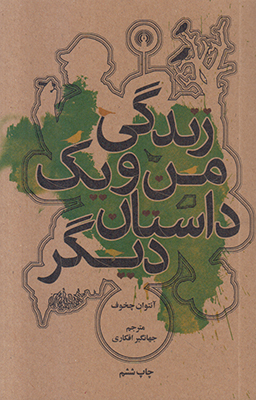 زندگی
من و یک
داستان
دیگر
آنتوان چخوف
مترجم
جهانگیر افکاری
چاپ ششم